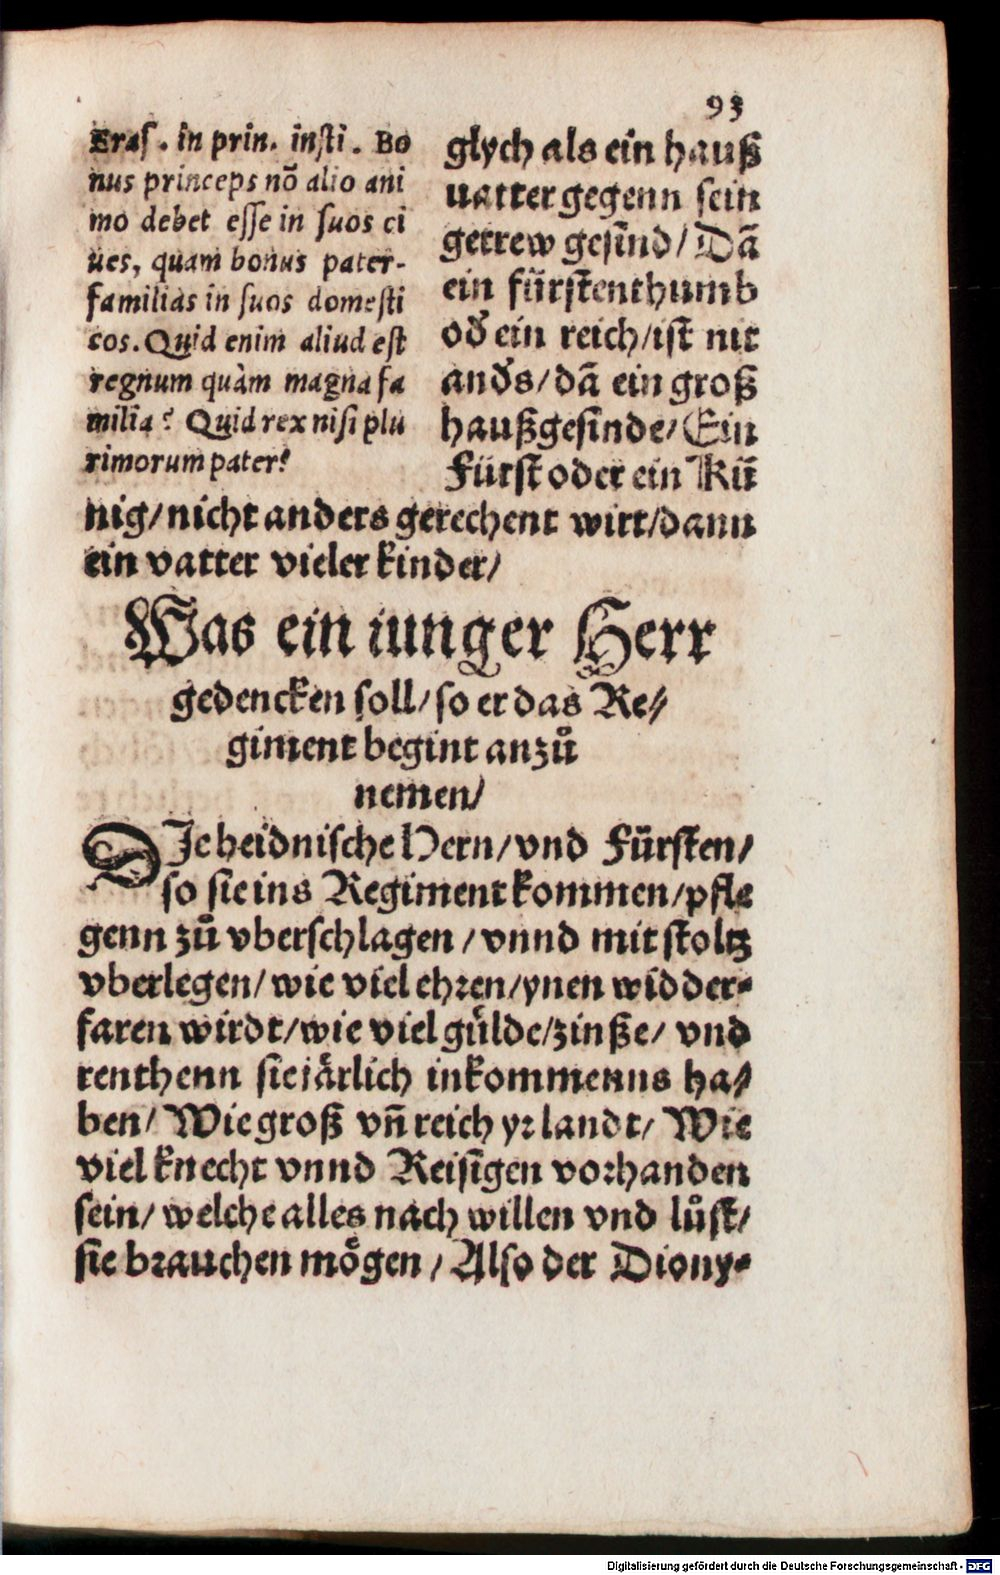 93
Eras. in prin. insti. Bo
nus princeps nō alio ani
mo debet esse in suos ci
ues, quam bonus pater-
familias in suos domesti
cos. Quid enim aliud est
regnum quàm magna fa
milia? Quid rex nisi plu
rimorum pater?
glych als ein hauß
uatter gegenn sein
getrew gesind/ Dā
ein fürstenthumb
od̕ ein reich/ist nit
and̕s/dā ein groß
haußgesinde/ Ein
Fürst oder ein Kü
nig/nicht anders gerechent wirt/dann
ein vatter vieler kinder/
Was ein iunger Herr
gedencken soll/so er das Re/
giment begint anzů
nemen/
DJe heidnische Hern/vnd Fürsten/
so sie ins Regiment kommen/pfle
genn zů vberschlagen/vnnd mit stoltz
vberlegen/wie viel ehren/ynen widder-
faren wirdt/wie viel gülde/zinße/ vnd
renthenn sie järlich inkommenns ha/
ben/ Wie groß vñ reich yr landt/ Wie
viel knecht vnnd Reisigen vorhanden
sein/welche alles nach willen vnd lůst/
sie brauchen mögen/Also der Diony-
Digitalisierung gefördert durch die Deutsche Forschungsgemeinschaft - DFG